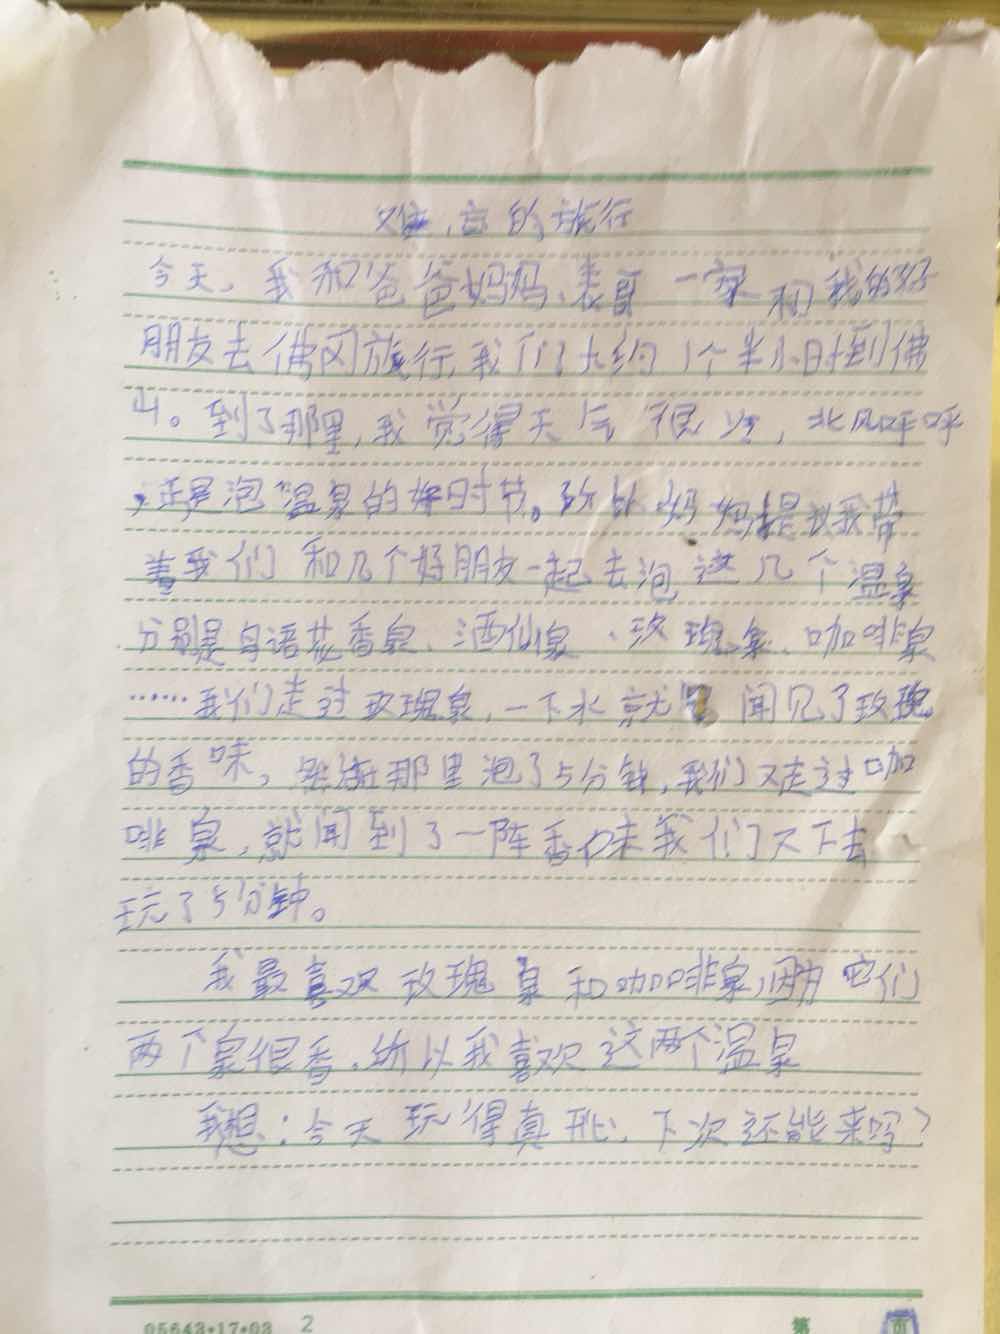 难忘的旅行
今天，我和爸爸妈妈、表哥一家和我的好
朋友去佛冈旅行，我们大约1个半小时到佛
山。到了那里，我觉得天气很冷，北风呼呼
，正是泡温泉的好时节。所以妈妈提议我带
着我们和几个好朋友一起去泡这几个温泉
分别是鸟语花香泉、酒仙泉、玫瑰泉、咖啡泉
……我们走过玫瑰泉，一下水就 闻见了玫瑰
的香味，  那里泡了5分钟，我们又走过咖
啡泉，就闻到了一阵香味我们又下去
玩了5分钟。
我最喜欢玫瑰泉和咖啡泉，因为它们
两个泉很香，所以我喜欢这两个温泉
我想：今天玩得真开心、下次还能来吗？
05643•17•03 2
第 页